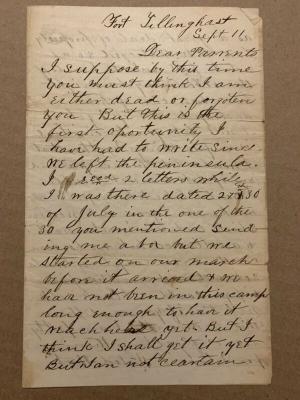 Fort Tillinghast
Sept 11
Dear Parrents
I suppose by this time
you must think I am
either dead or forgoten
you But this is the
first oportunity I
have had to write since
we left the peninsula.
I recd 2 letters while
I was there dated 27 & 30
of July in the one of the
30 you mentioned send
ing me a box but we
started on our march
before it arrived & we
had not been in this camp
long enough to have it
reach here yet. But I
think I shall get it yet
But I an not ceartain